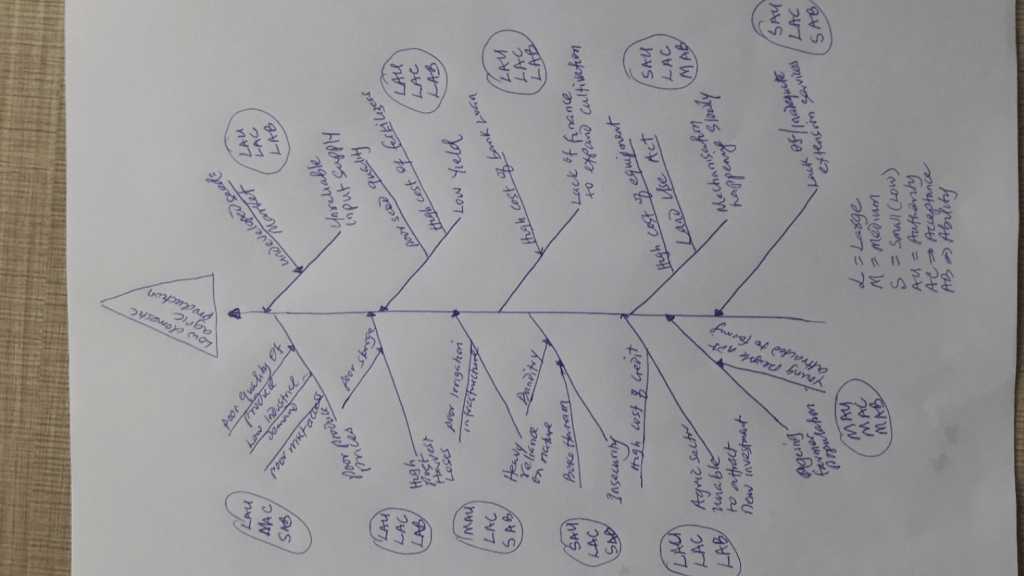 Low domestic
agric
production
LAU
LAC
LAB
Undeveloped
Market
Unreliable
Input Supply
LAU
LAC
LAB
Poor seed quality
High cost of fertilizers
Low Yield
LAU
LAC
LAB
High cost of bank loan
Lack of finance
to expand cultivation
SAU
LAC
MAB
High cost of equipment
Land Use Act
Mechanisation
happening slowly
SAU
LAC
SAB
Lack of/inadequate
extension services
Poor quality of
produce
Low industrial
demand
Poor mkt access
Poor produce
prices
LAU
MAC
SAB
Poor storage
High
Post
Harvest
Loses
LAU
LAC
LAB
Poor irrigation
infrastructure
Heavy
reliance
on nature
MAU
LAC
SAB
Banditry
Boko Haram
Insecurity
SAU
LAC
SAB
High cost of credit
Agric sector
unable
to attract
new investment
LAU
LAC
LAB
Young people not
attracted to farming
Ageing
farmer
population
MAU
MAC
MAB
L = Large
M = Medium
S = Small (Low)
AU = Authority
AC → Acceptance
AB → Ability